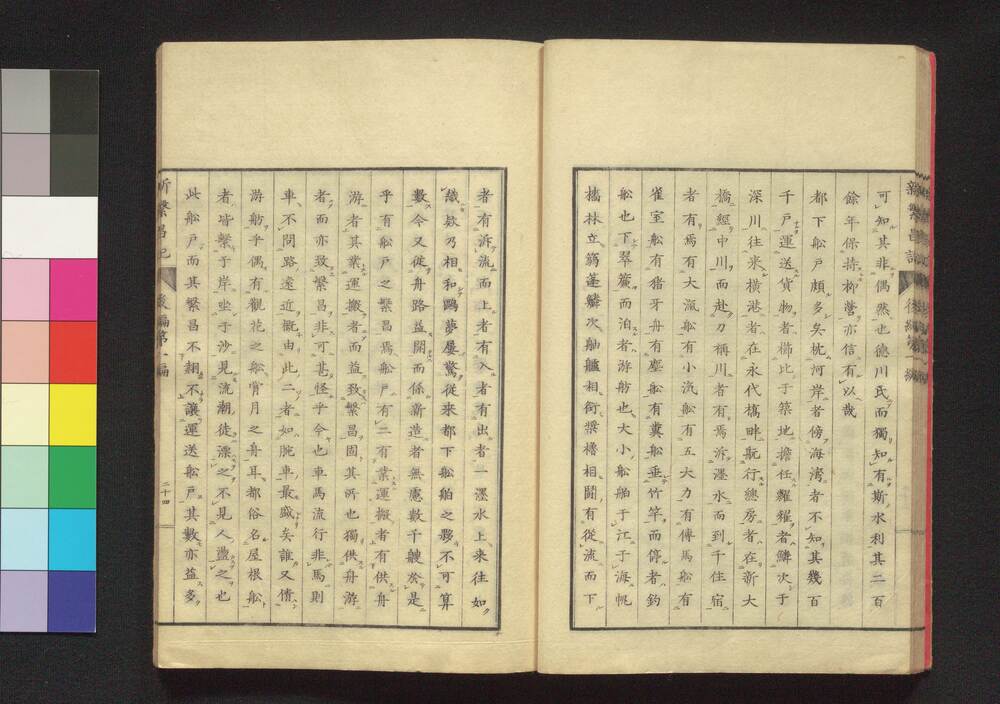 可知其非偶然也德川氏而獨知有斯水利其二百
餘年保持柳營亦信有以哉
都下舩戶頗多矣枕河岸者傍海灣者不知其幾百
千戶運送貨物者櫛比于築地擔任糶糴者鱗次于
深川往来橫港者在永代橋畔航行總房者在新大
橋經中川而赴刀稱川者有焉泝墨水而到千住宿
者有焉有大滊舩有小滊舩有五大力有傳馬舩有
雀室舩有猪牙舟有塵舩有糞舩垂竹竿而停者釣
舩也下翠簾而泊者游舫也大小舩舶于江于海帆
檣林立篛蓬鱗次舳艫相銜槳櫓相鬪有從流而下
者有泝流而上者有入者有出者一墨水上来往如
織欸乃相和鷗夢屢驚從来都下舩舶之夥不可算
數今又從舟路益開而係新造者無慮數千艘於是
乎有舩戶之繁昌焉舩戶有二有業運搬者有供舟
游者其業運搬者而益致繁昌固其所也獨供舟游
者而亦致繁昌非可甚怪乎今也車馬流行非馬則
車不問路遠近概由此二者如腕車最盛矣誰又倩
游舫乎偶有觀花之舩賞月之舟耳都俗名屋根舩
者皆繫于岸坐于沙見流潮徒漂之不見人盪之也
此舩戶而其繁昌不翅不讓運送舩戶其數亦益多
新繁昌記
後編第一編
二十四